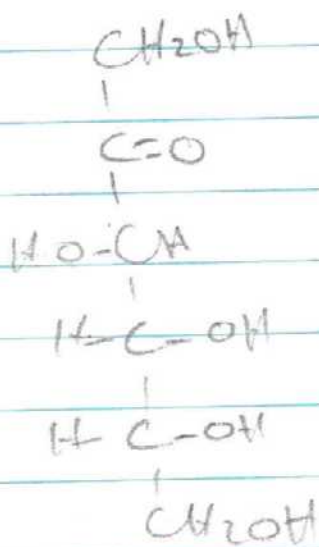 CH2OH
C=O
HO-CH
H-C-OH
H-C-OH
CH2OH